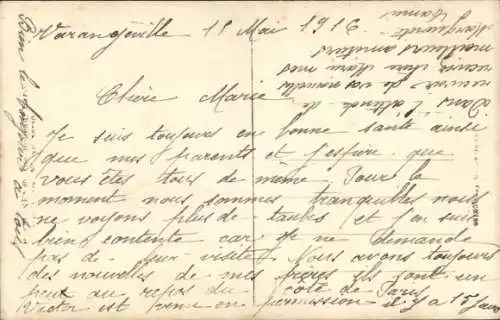 Varangéville 18 Mai 1916.
Chère Marie
Je suis toujours en bonne santé ainsi
que mes parents et j'espère que
vous êtes tous de même. Pour le
moment nous sommes tranquilles nous
ne voyons plus de taubes et j'en suis
bien contente car je ne demande
pas de leur visite. Nous avons toujours
des nouvelles de mes frères ils sont un
peut au repos du côté de Paris
Victor est venu en permission il y a 15 jours
Dans l'attente de
recevoir de vos nouvelles
recevez chère Marie mes
meilleures amitiés
Marguerite
Bien le bonjour à tous